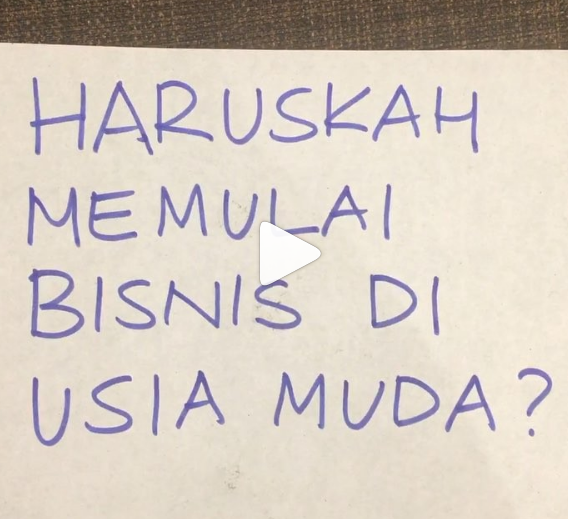 HARUSKAH
MEMULAI
BISNIS DI
USIA MUDA?